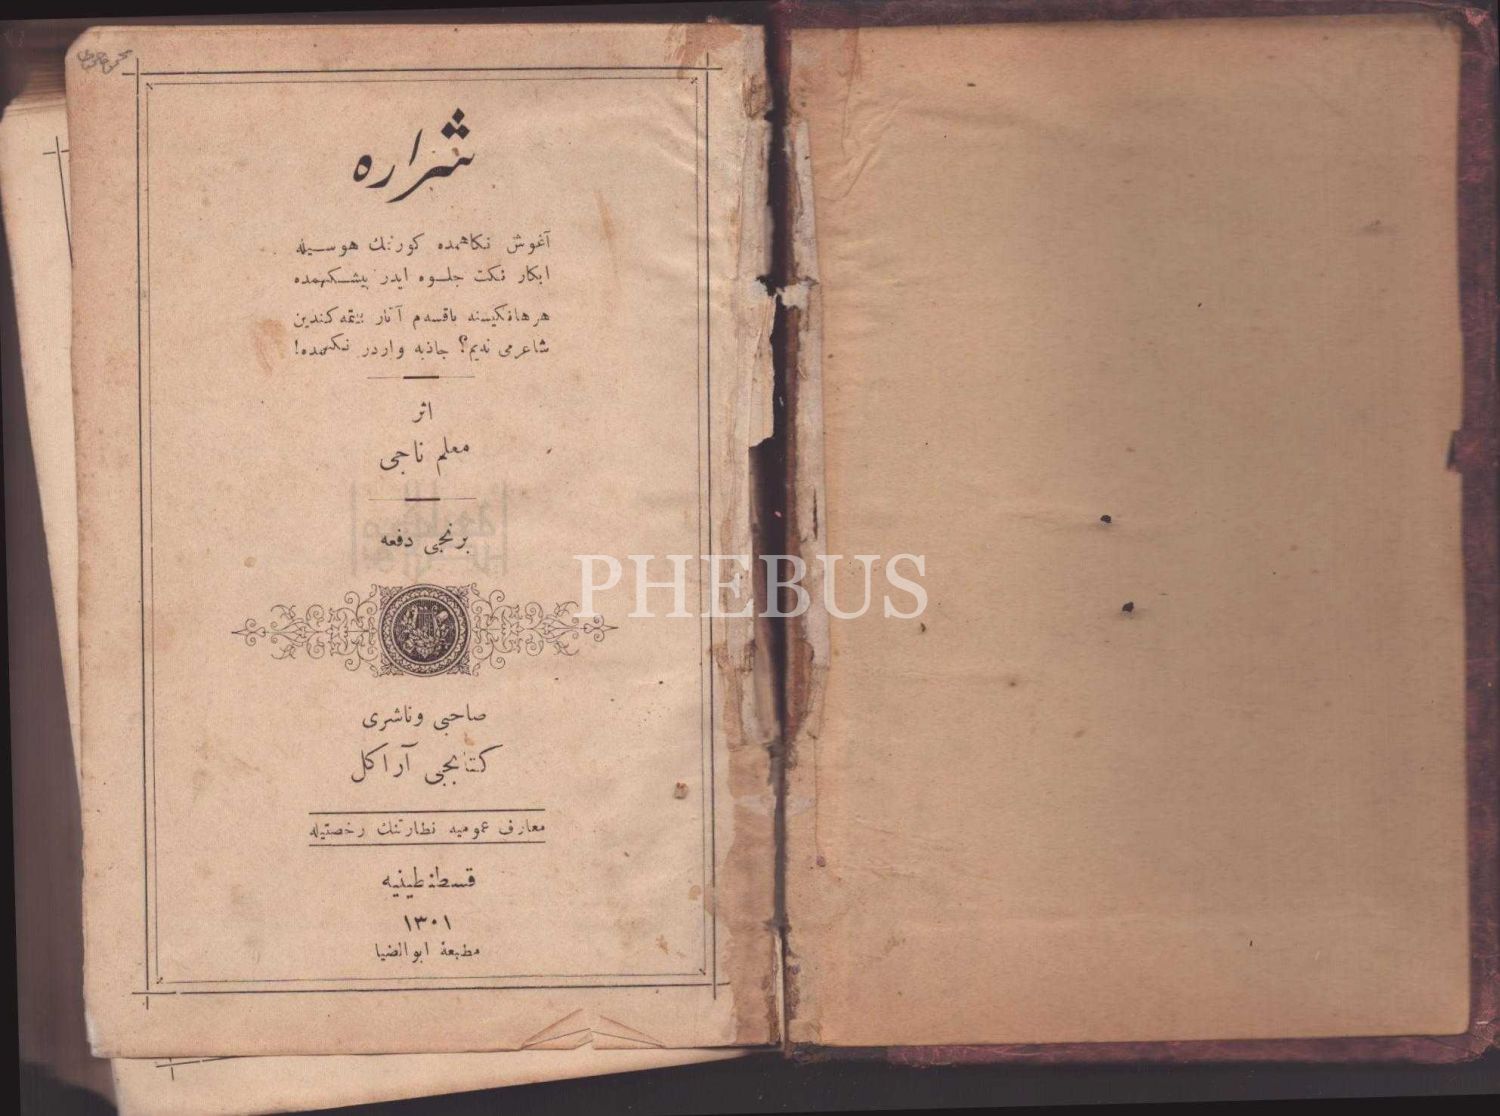 شراره
آغوش نكاهمده كورنك هوسيله
ابكار نكت جلوه ايدر پيشكهمده
هر هانكيسنه باقسه‌م آثار ييتمه كندين
شاعرمى نديم؟ جاذبه واردر نكهمده!
اثر
معلم ناجى
برنجى دفعه
PHEBUS
صاحبى وناشرى
كتابجى آراكل
معارف عموميه نظارتنك رخصتيله
قسطنطينيه
١٣٠١
مطبعهٔ ابوالضيا